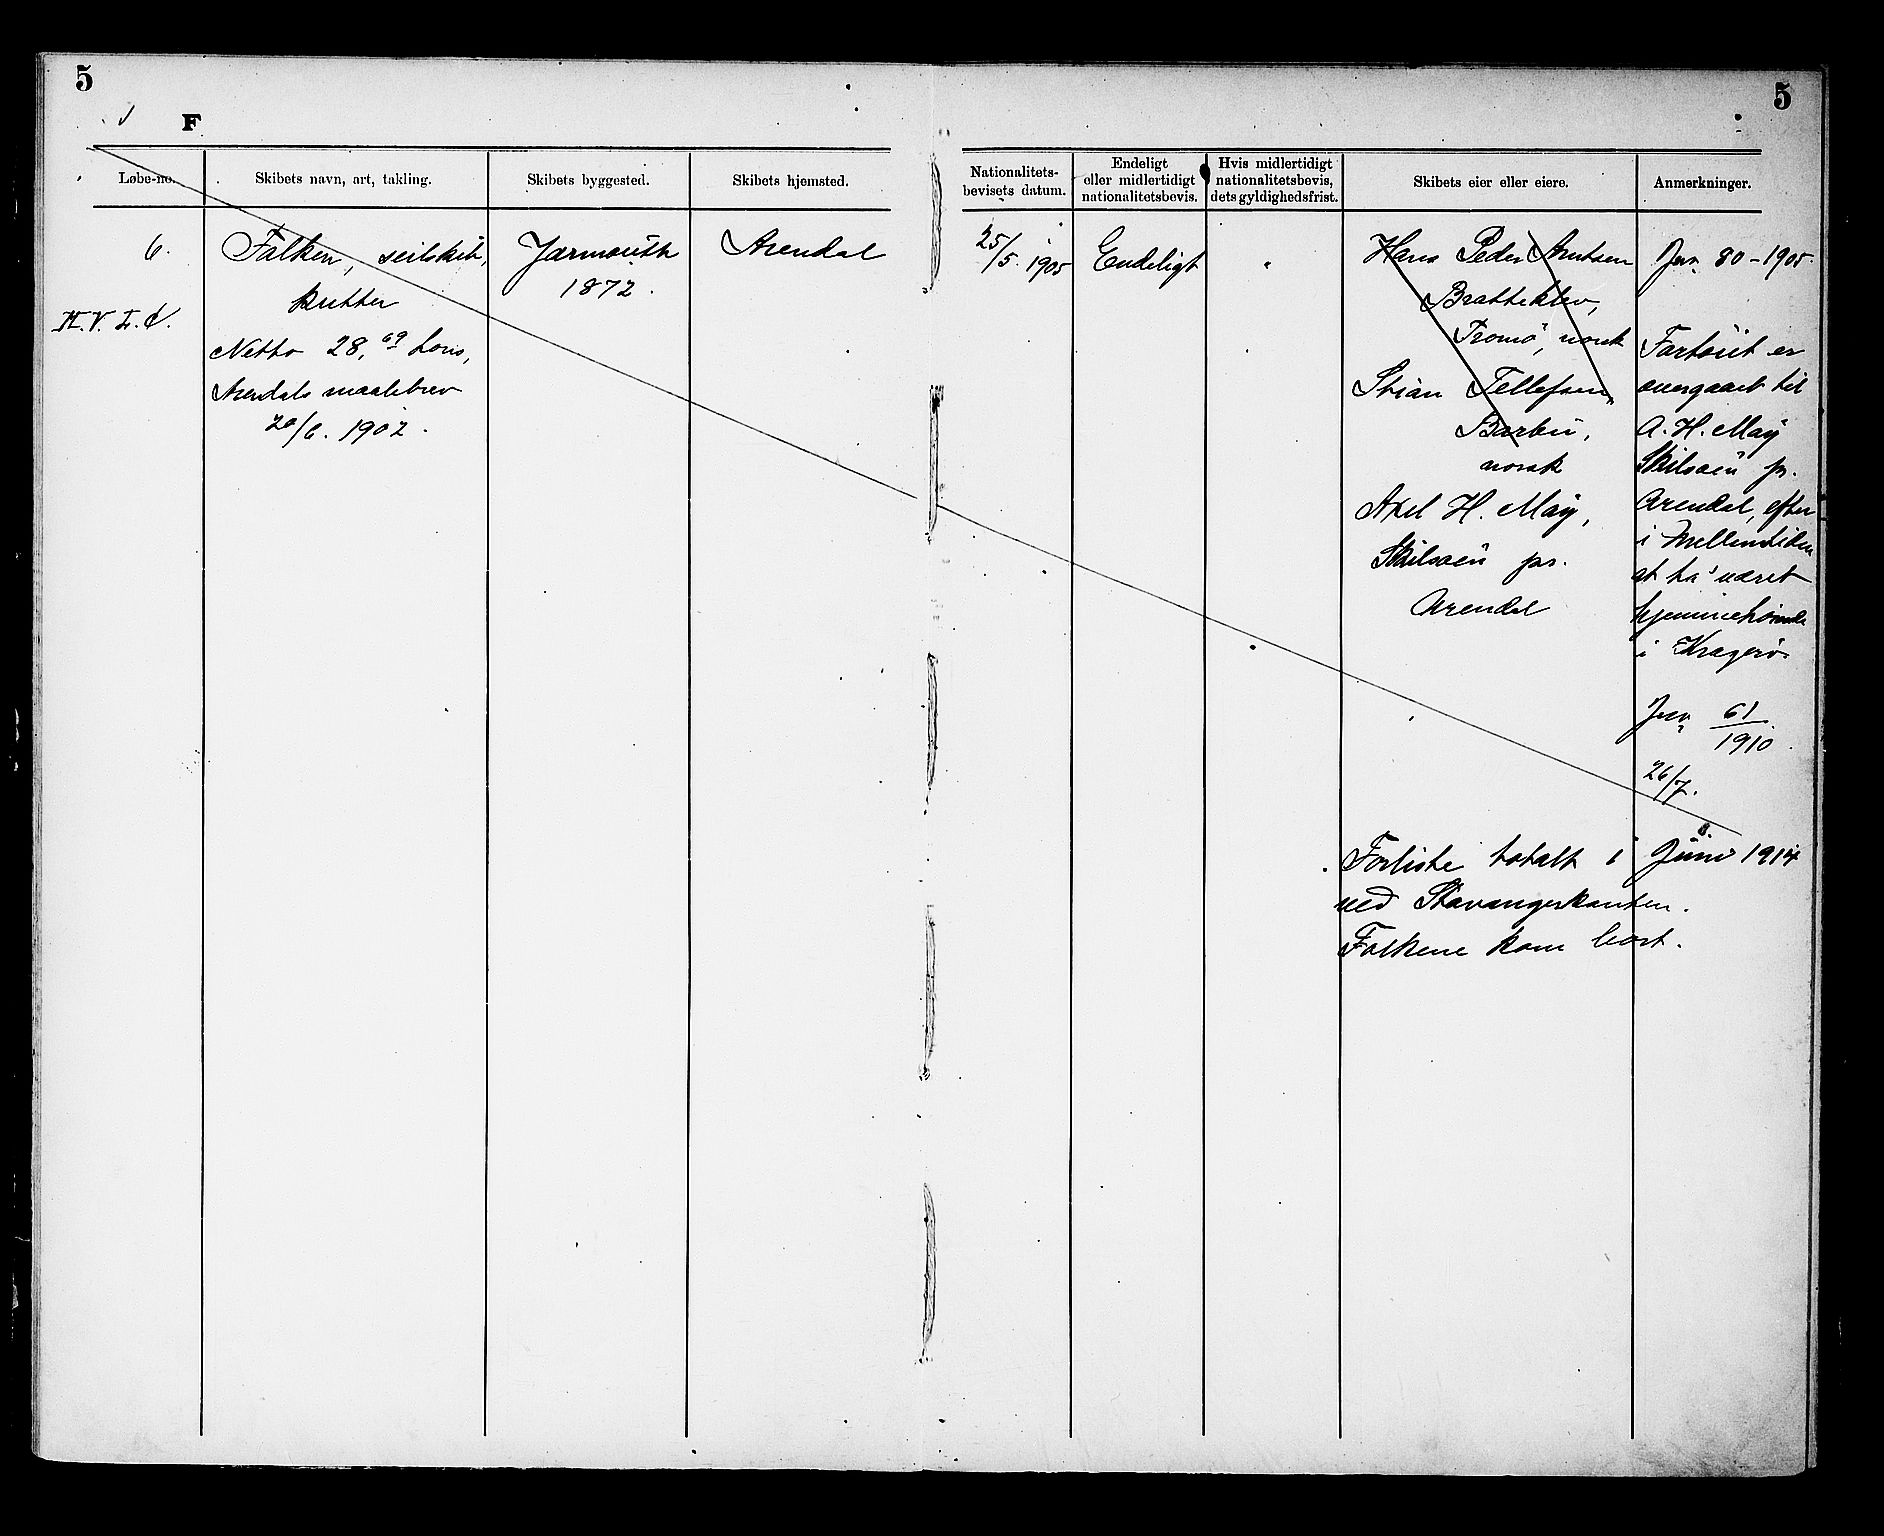 5
5
F
Løbe-no.
Skibets navn, art, takling.
Skibets byggested.
Skibets hjemsted.
Nationalitets-
bevisets datum.
Endeligt
eller midlertidigt
nationalitetsbevis.
Hvis midlertidigt
nationalitetsbevis,
dets gyldighedsfrist.
Skibets eier eller eiere.
Anmerkninger.
6.
Falken, seilskib,
kutter
Netto 28,69 tons,
Arendals maalebrev
20/6. 1902.
Yarmouth
1872.
Arendal
25/5. 1905
Endeligt
"
Hans Peder Knutsen
Bratteklev,
Tromö, norsk
Stian Tellefsen,
Barbu,
norsk
Axel H. May,
Skilsøen pr.
Arendal
Jnr. 80-1905.
Fartöiet er
overgaaet til
A. H. May
Skilsøen pr.
Arendal, efter
i Mellemtiden
at ha' været
hjemmehörende
i Kragerö.
Jnr. 61/1910.
26/7.
Forliste totalt i Juni 1914
ved Stavangerkanten.
Folkene kom bort.